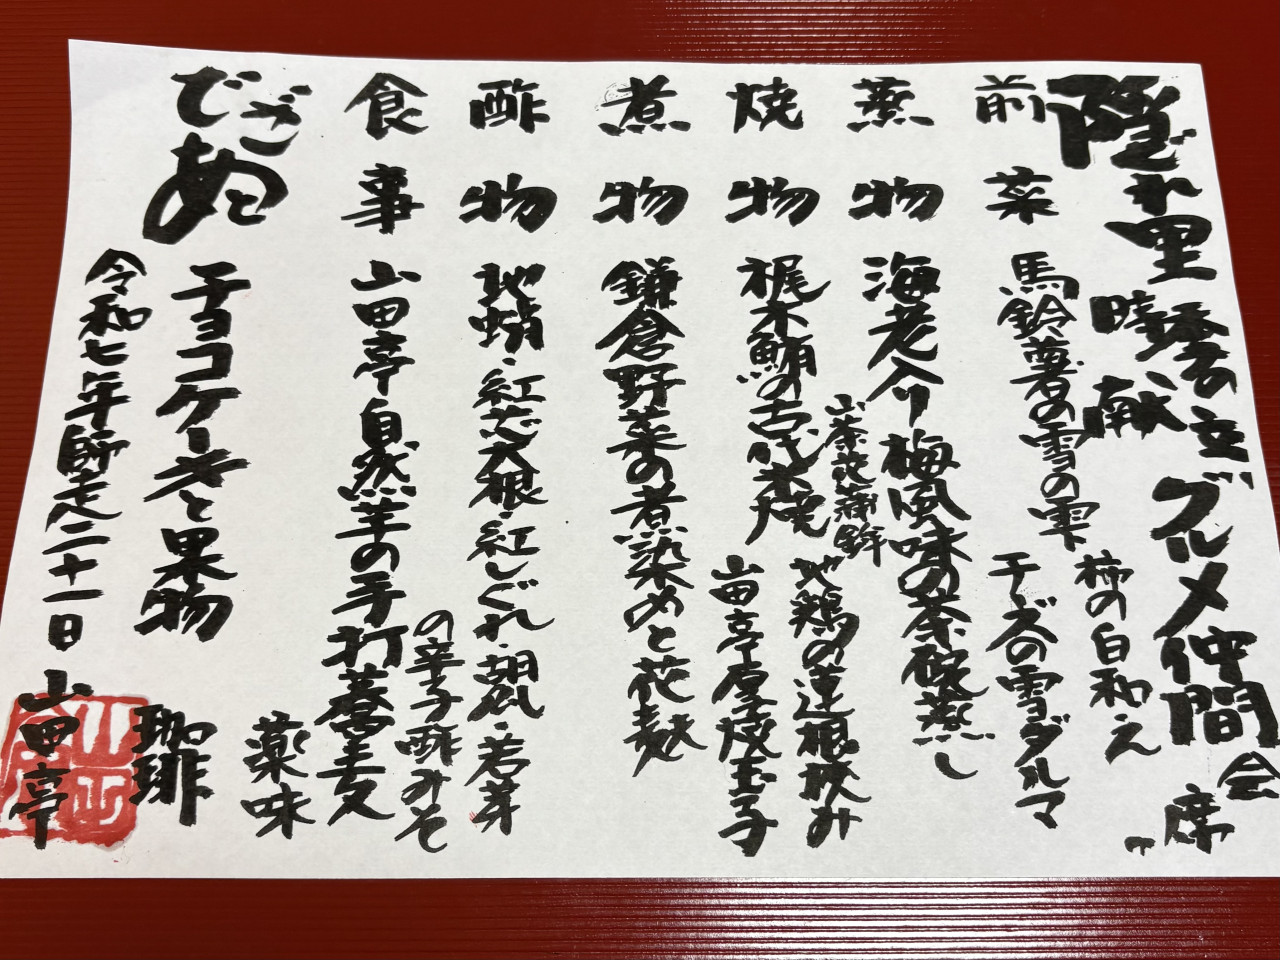 隠れ里 時献 グルメ仲間
会席
前菜 馬鈴薯の雪の雫 柿の白和え
チーズの雪ダルマ
蒸物 海老入り梅風味の茶碗蒸し
山茶花蒲鉾
焼物 梶木鮪の古代米焼 地鶏の蓮根挟み
山田亭厚焼玉子
煮物 鎌倉野菜の煮染めと花麩
酢物 地蛸・紅芯大根・紅しぐれ・胡瓜・若芽
の辛子酢みそ
食事 山田亭自然芋の手打蕎麦
薬味
でざあと チョコケーキと果物
珈琲
令和七年師走二十一日 山田亭